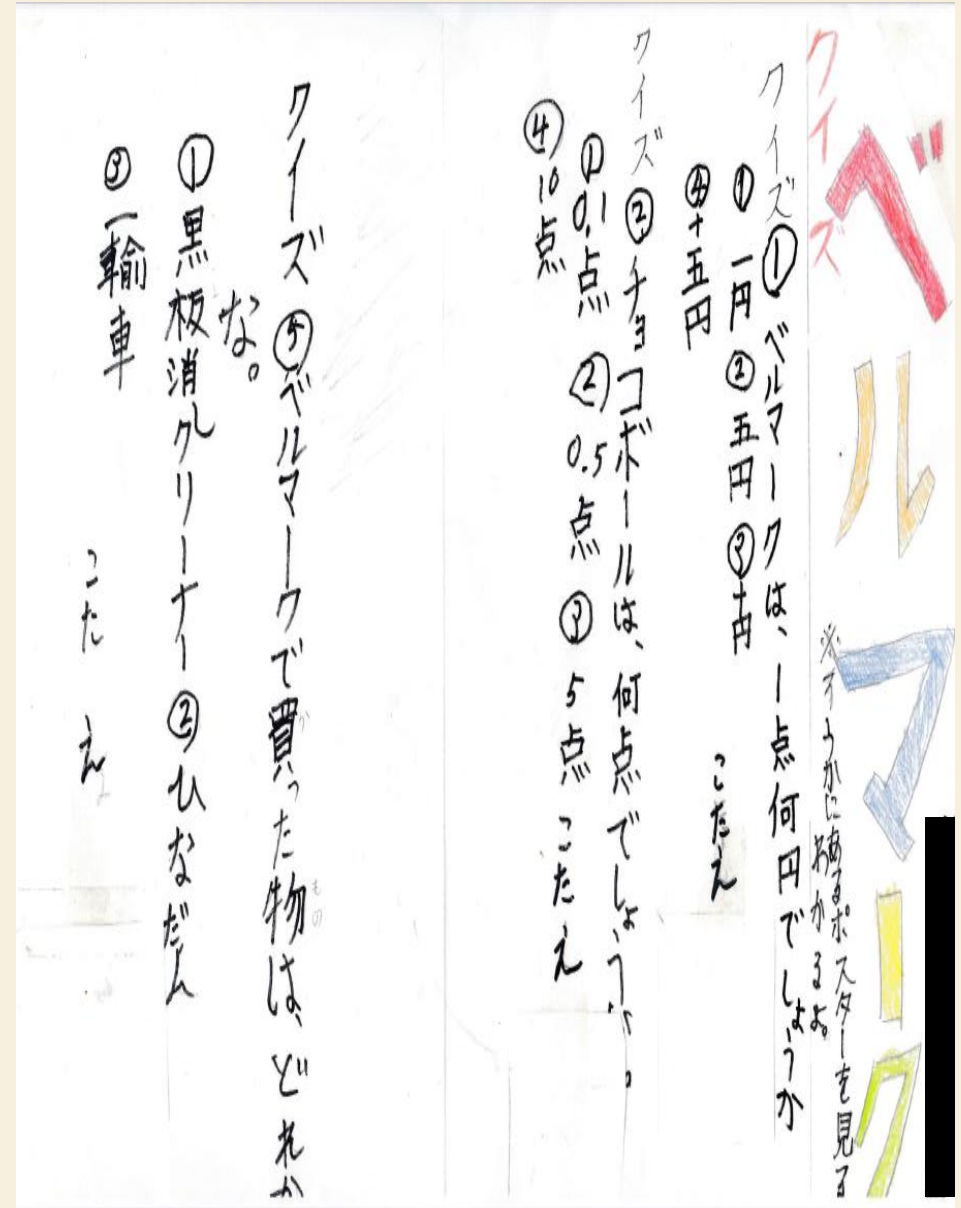 ベルマーク
クイズ
※ろうかにあるポスターを見る
わかるよ。
クイズ① ベルマークは、1点何円でしょうか
① 一円 ② 五円 ③ 十円
④ 十五円
こたえ
クイズ② チョコボールは、何点でしょうか。
① 0.1点 ② 0.5点 ③ 5点 こたえ
④ 10点
クイズ⑤ ベルマークで買った物は、どれか
な。
① 黒板消しクリーナー ② ひなだん
③ 一輪車
こたえ